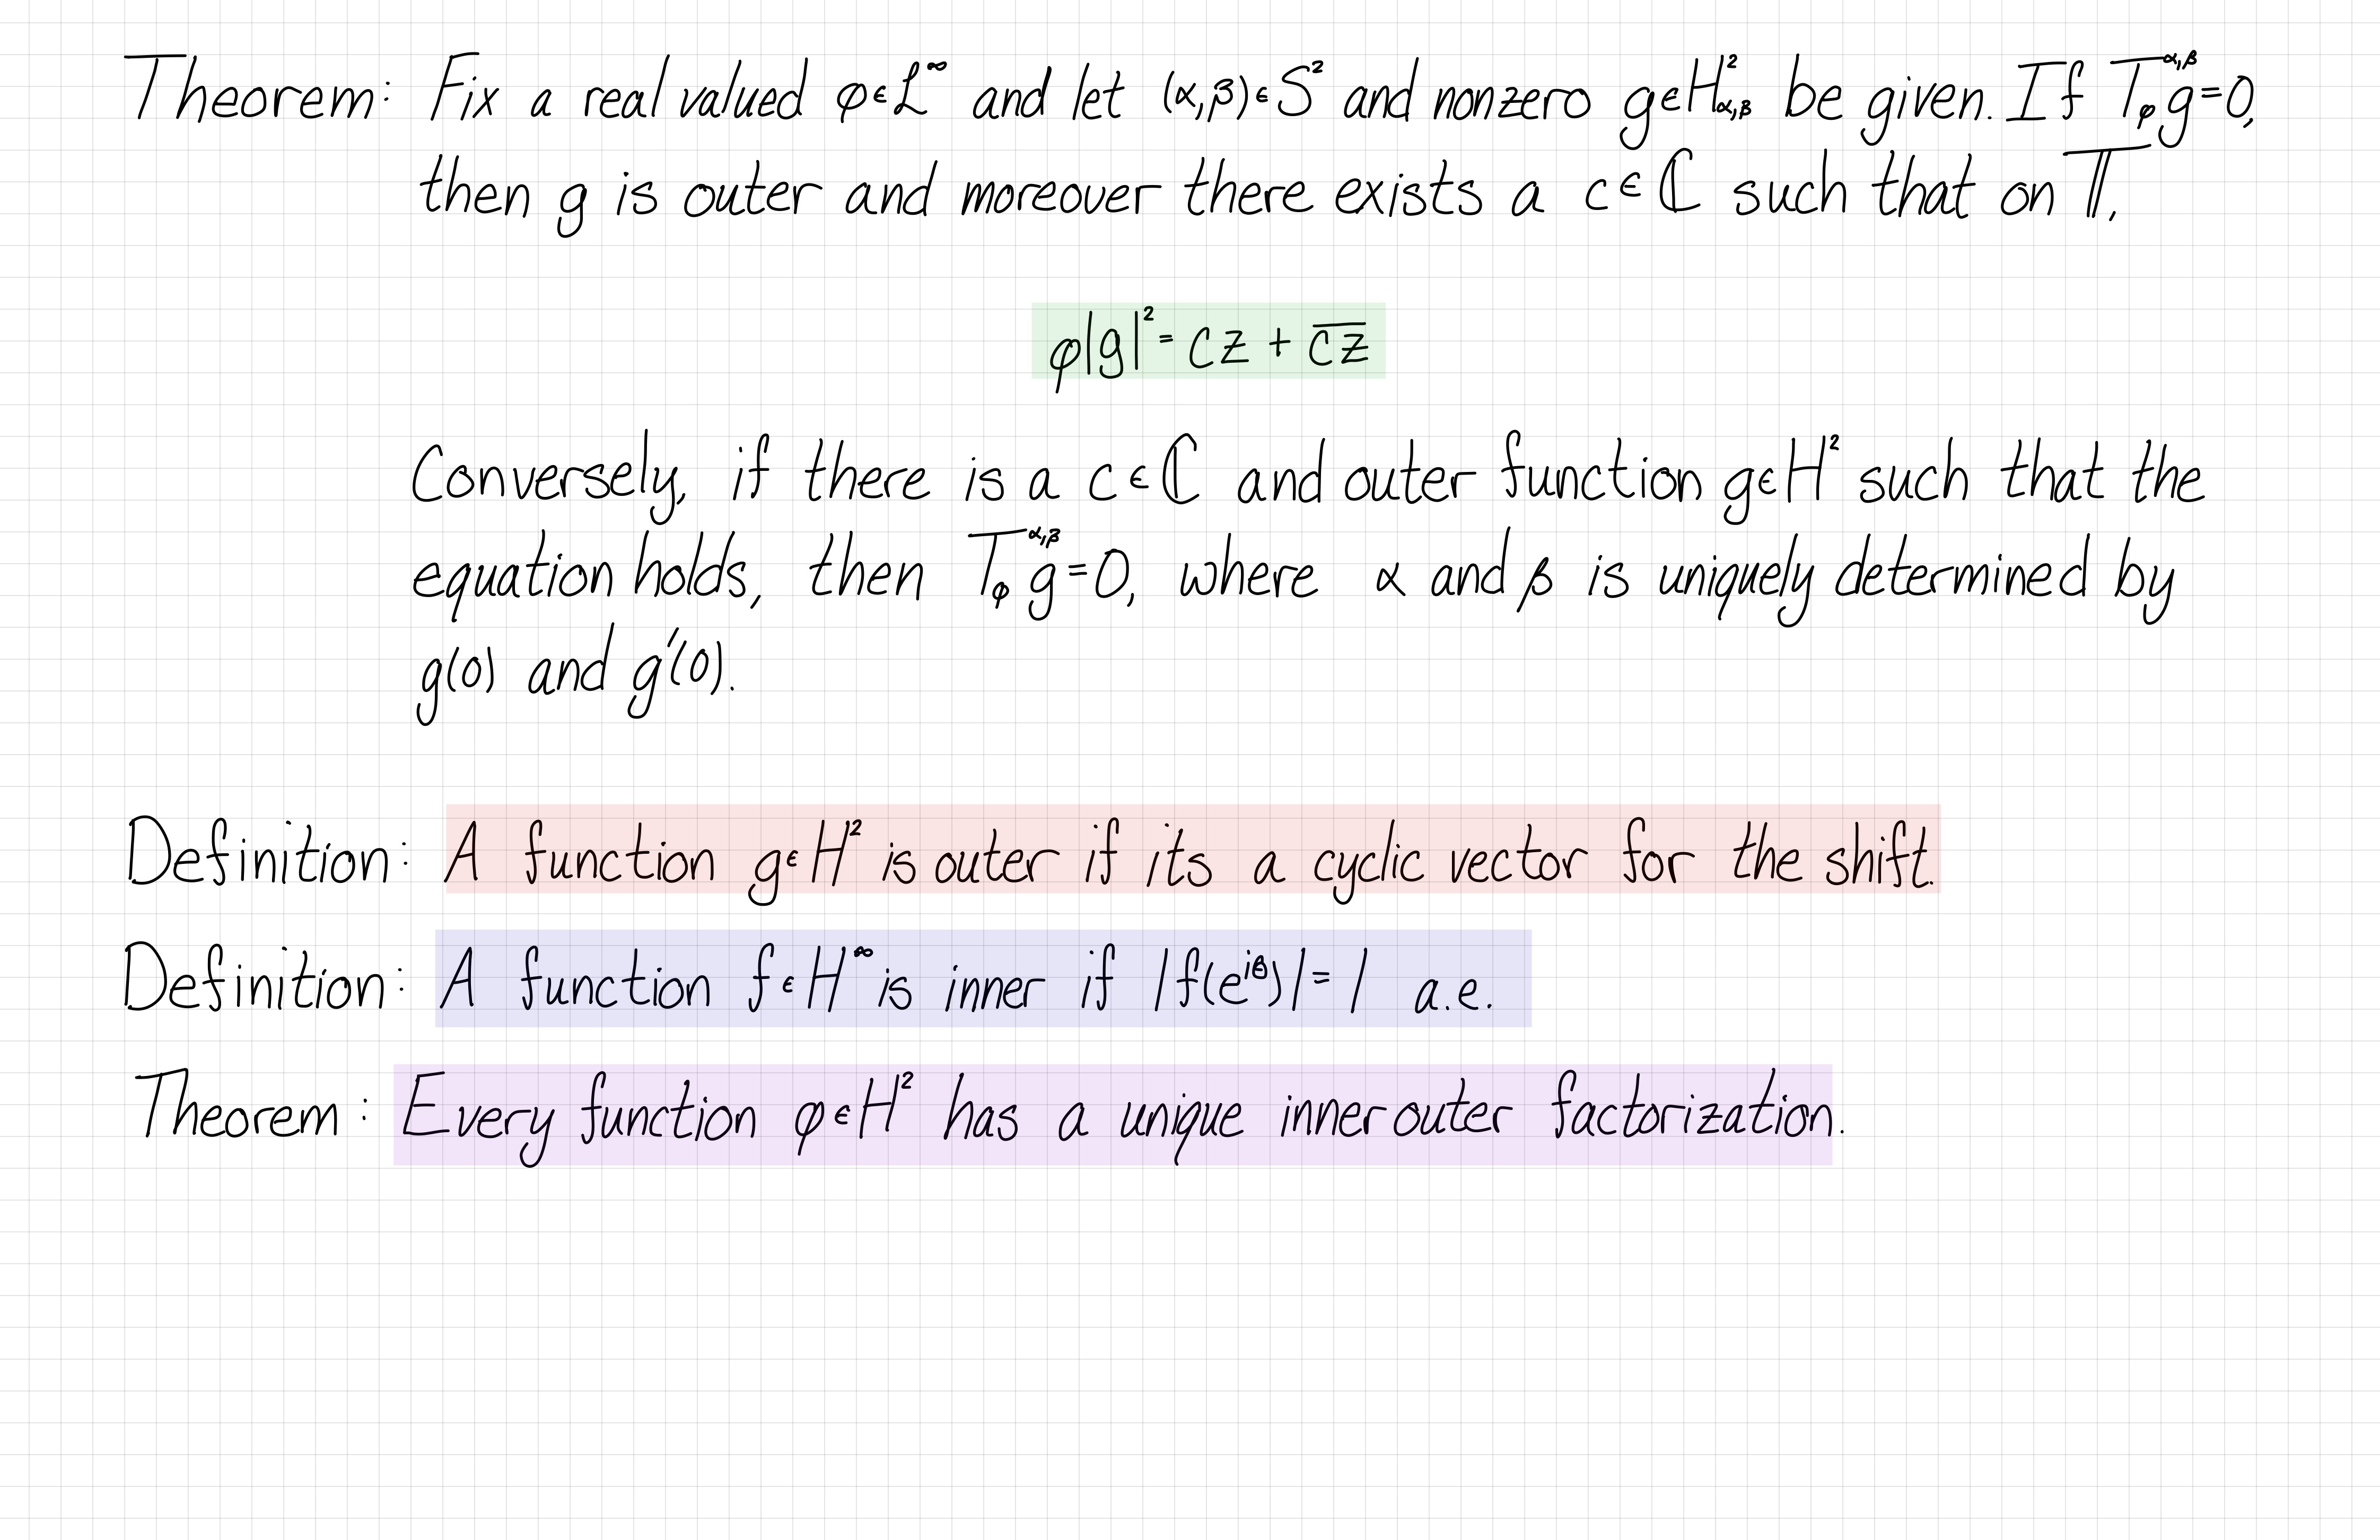 Theorem: Fix a real valued φ∈L^∞ and let (α,β)∈S² and nonzero g∈H²_{α,β} be given. If T_φ^{α,β} g=0,
then g is outer and moreover there exists a c∈ℂ such that on 𝕋,
φ|g|² = cz + \overline{cz}
Conversely, if there is a c∈ℂ and outer function g∈H² such that the
equation holds, then T_φ^{α,β} g=0, where α and β is uniquely determined by
g(0) and g'(0).
Definition: A function g∈H² is outer if its a cyclic vector for the shift.
Definition: A function f∈H^∞ is inner if |f(e^{iθ})|=1 a.e.
Theorem: Every function φ∈H² has a unique inner outer factorization.